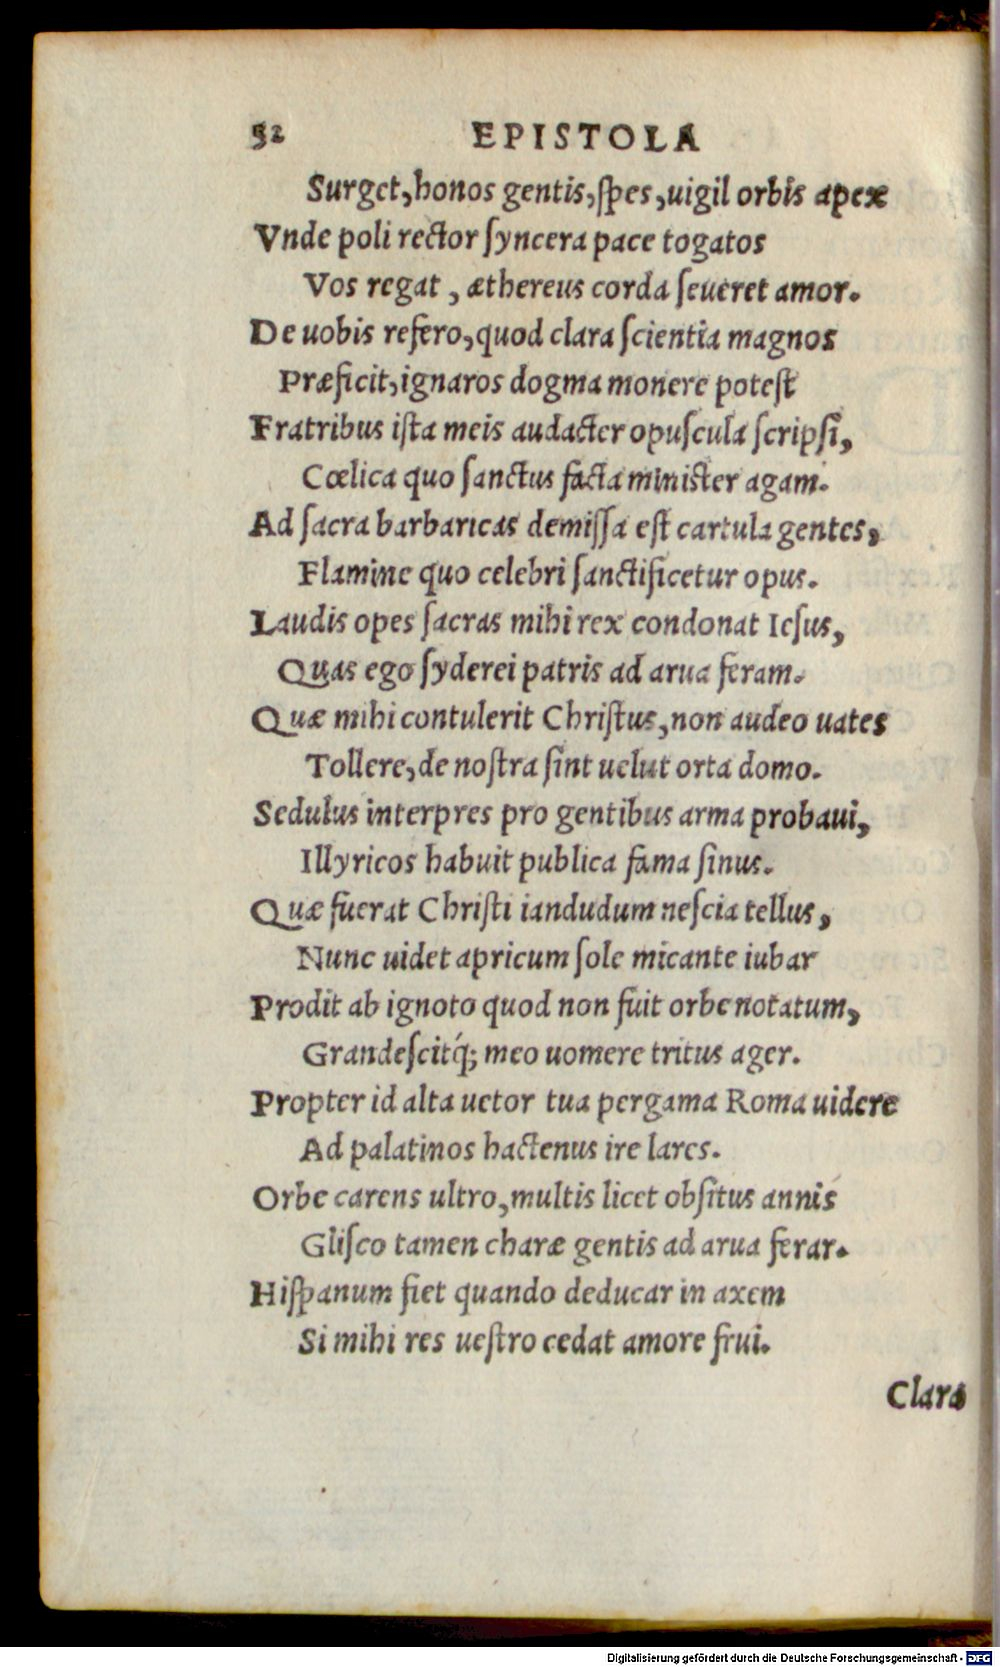 52 EPISTOLA
Surget, honos gentis, spes, uigil orbis apex
Vnde poli rector syncera pace togatos
Vos regat, æthereus corda seueret amor.
De uobis refero, quod clara scientia magnos
Præficit, ignaros dogma monere potest
Fratribus ista meis audacter opuscula scripsi,
Cœlica quo sanctus facta minister agam.
Ad sacra barbaricas demissa est cartula gentes,
Flamine quo celebri sanctificetur opus.
Laudis opes sacras mihi rex condonat Iesus,
Quas ego syderei patris ad arua feram.
Quæ mihi contulerit Christus, non audeo uates
Tollere, de nostra sint uelut orta domo.
Sedulus interpres pro gentibus arma probaui,
Illyricos habuit publica fama sinus.
Quæ fuerat Christi iandudum nescia tellus,
Nunc uidet apricum sole micante iubar
Prodit ab ignoto quod non fuit orbe notatum,
Grandescitq́; meo uomere tritus ager.
Propter id alta uetor tua pergama Roma uidere
Ad palatinos hactenus ire lares.
Orbe carens ultro, multis licet obsitus annis
Glisco tamen charæ gentis ad arua ferar.
Hispanum fiet quando deducar in axem
Si mihi res uestro cedat amore frui.
Clara
Digitalisierung gefördert durch die Deutsche Forschungsgemeinschaft - DFG